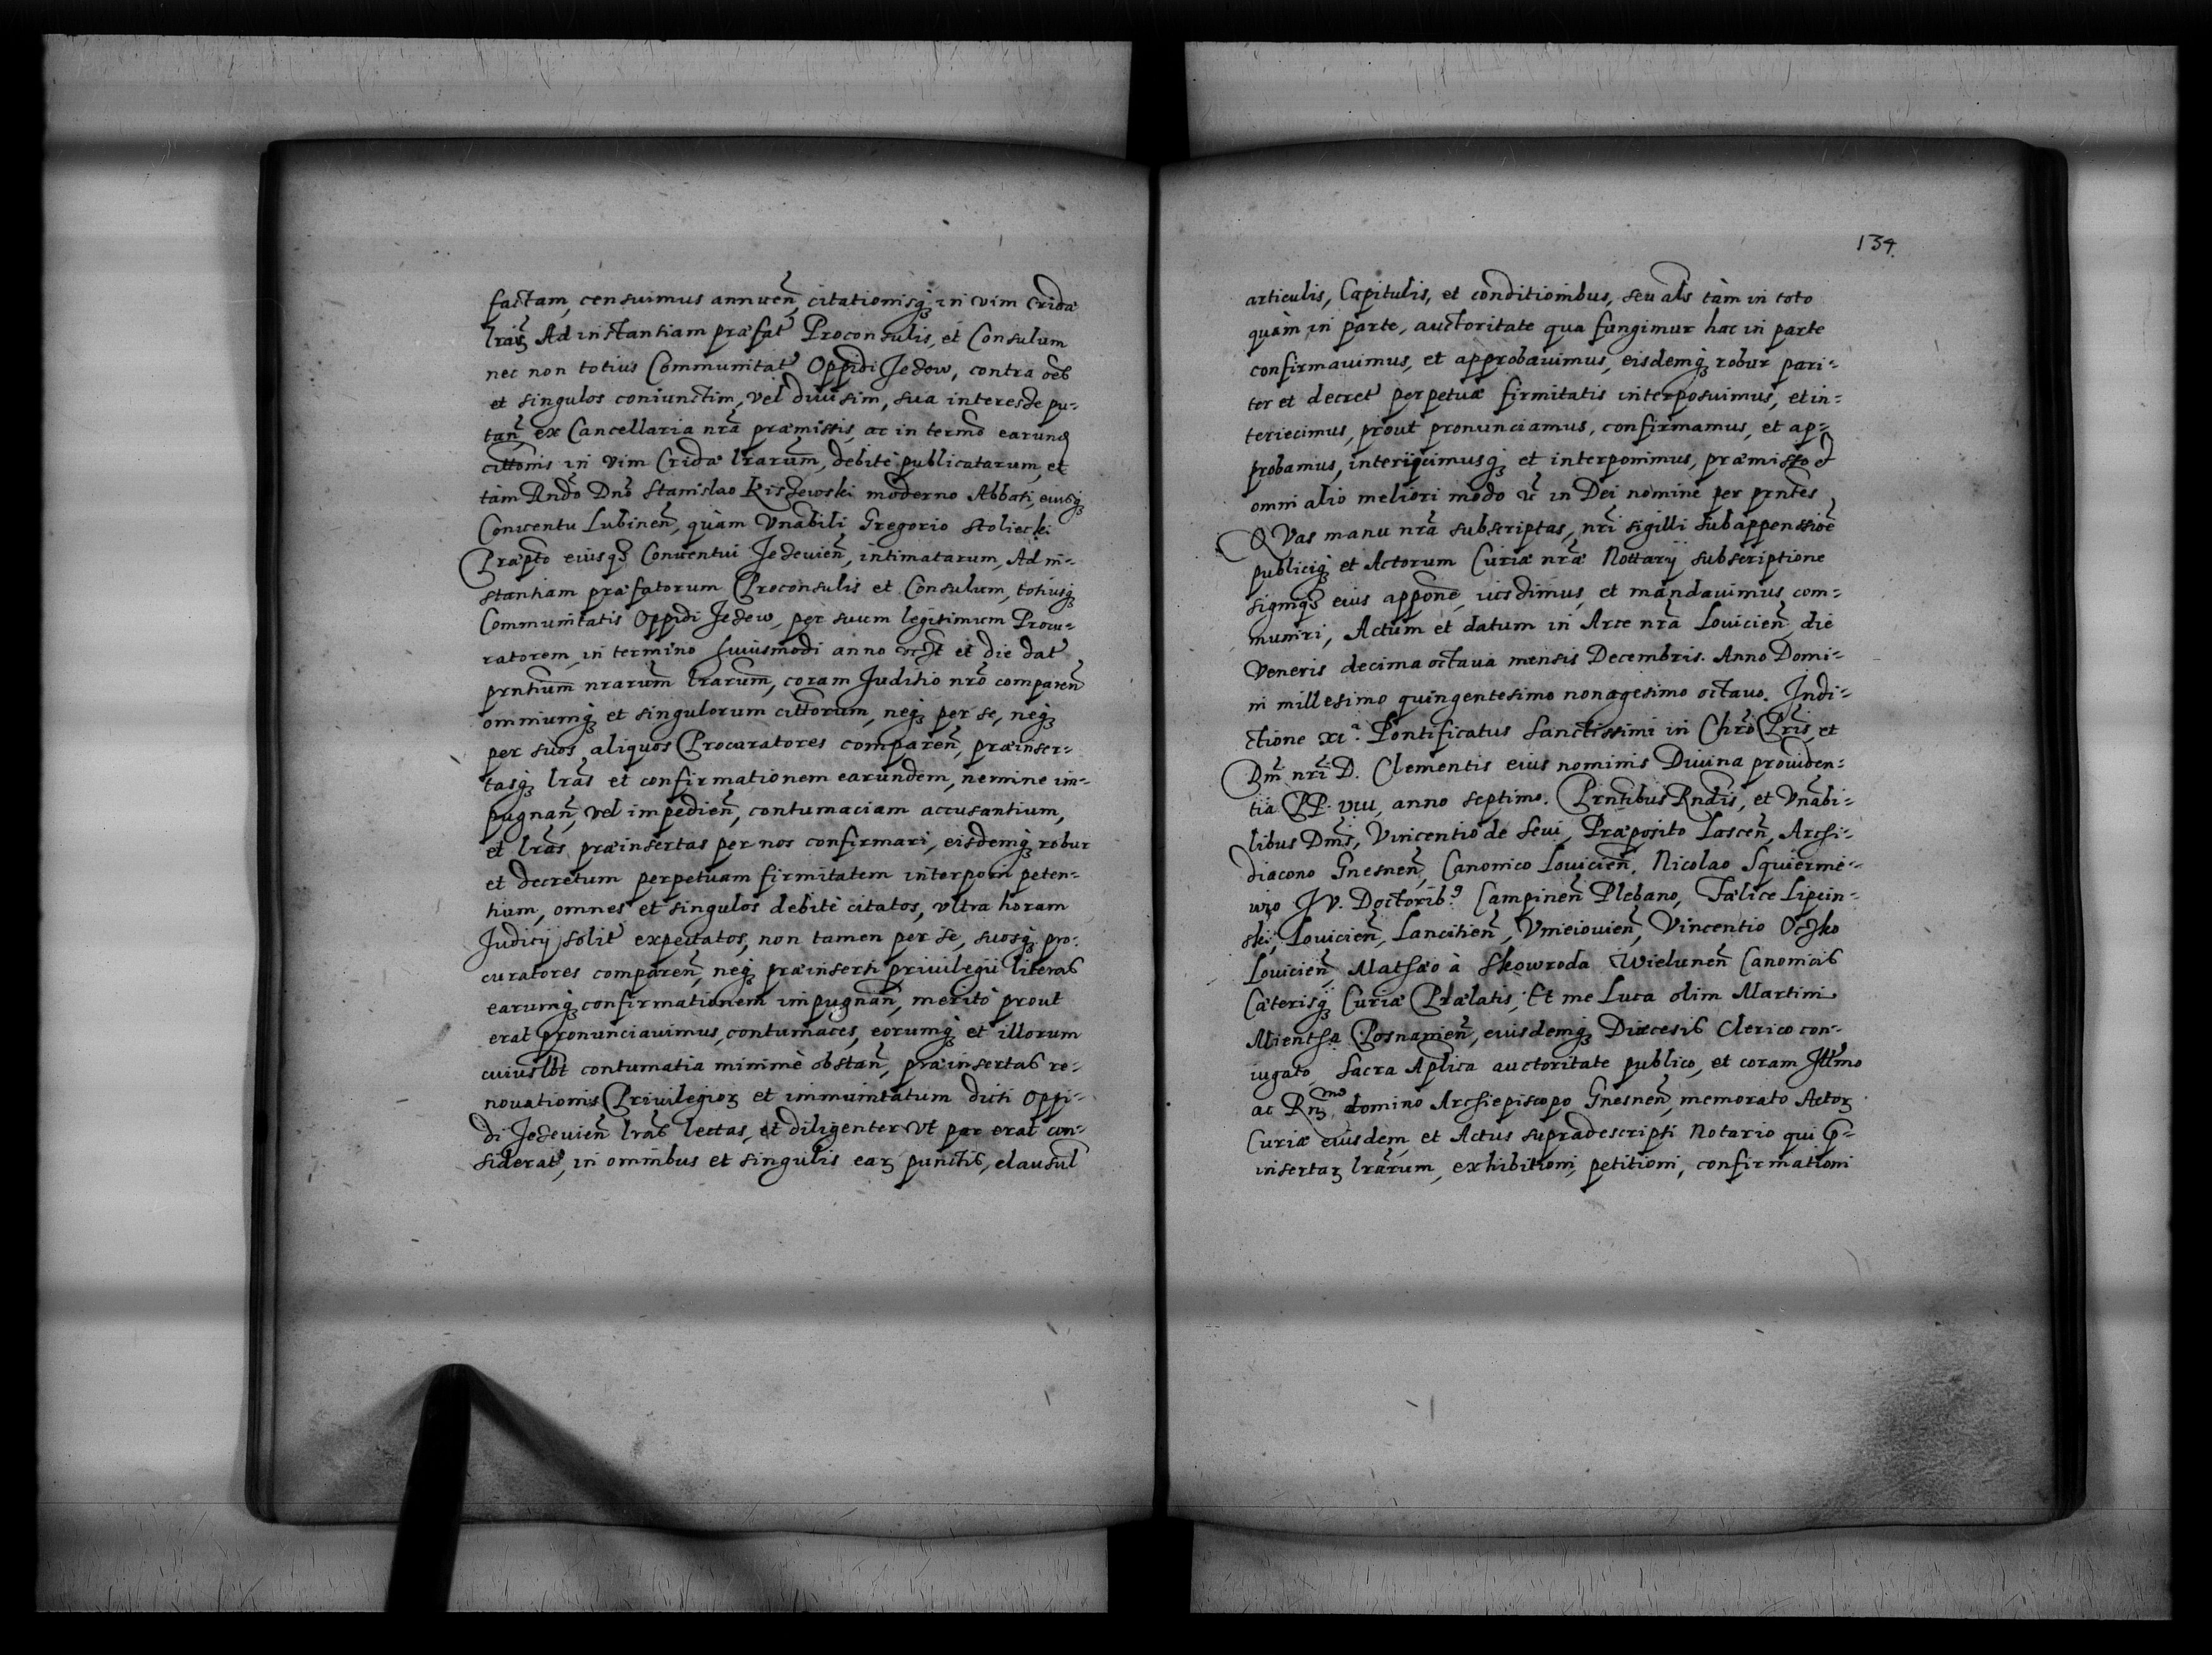 factam, censuimus annuen̄, citationisq₃ in vim Cridæ
lrãꝝ Ad instantiam præfat̃ Proconsulis, et Consulum
nec non totius Communitat̃ Oppidi Jeżew, contra oẽs
et singulos coniunctim, vel diuisim, sua interesse pu-
tan̄, ex Cancellaria nr̃a præmissis, ac in termõ earund̃
cittõnis in vim Cridæ lrarum̃, debitè publicatarum, et
tàm Rndõ Dnõ Stanislao Kiszewski moderno Abbati, eiusq₃
Conuentu Lubinen̄, quàm Vnabili Gregorio Stoliecki
Præptõ eiusq₃ Conuentui Jeżeuien̄, intimatarum, Ad in-
stantiam præfatorum Proconsulis et Consulum, totiusq₃
Communitatis Oppidi Jeżew, per suum legitimum Procu-
ratorem, in termino huiusmodi anno et die dat̃
prntium̃ nrarum̃ lrarum̃, coram Juditio nrõ comparen̄
omniumq₃ et singulorum cittorum, neq₃ per se, neq₃
per suos aliquos Procuratores comparen̄, præinser-
tasq₃ lrãs et confirmationem earundem, nemine im-
pugnan̄, vel impedien̄, contumaciam accusantium,
et lrãs præinsertas per nos confirmari, eisdemq₃ robur
et decretum perpetuam firmitatem interponi peten-
tium, omnes et singulos debitè citatos, vltra horam
Judicij solit̃ expectatos, non tamen per se, suosq₃ pro-
curatores comparen̄, neq₃ præinserti priuilegii literas
earumq₃ confirmationem impugnan̄, meritò prout
erat pronunciauimus, contumaces, eorumq₃ et illorum
cuiuslbt contumatia minimè obstan̄, præinsertas re-
nouationis Priuilegioꝝ et immunitatum dicti Oppi-
di Jeżeuien̄ lrãs lectas, et diligenter vt par erat con-
siderat̃, in omnibus et singulis eaꝝ punctis, clausul
134.
articulis, Capitulis, et conditionibus, seu als tàm in toto
quàm in parte, auctoritate qua fungimur hac in parte
confirmauimus, et approbauimus, eisdemq₃ robur pari-
ter et decret̃ perpetuæ firmitatis interposuimus, et in-
teriecimus, prout pronunciamus, confirmamus, et ap-
probamus, interijcimusq₃ et interponimus, præmisso et
omni alio meliori modo in Dei nomine per prntes
QVas manu nr̃a subscriptas, nr̃i sigilli subappensiõe
publiciq₃ et Actorum Curiæ nræ Nottarij subscriptione
signiq₃ eius appõne, iussimus, et mandauimus com-
muniri, Actum et datum in Arce nr̃a Louicien̄, die
Veneris decima octaua mensis Decembris. Anno Domi-
ni millesimo quingentesimo nonagesimo octauo. Indi-
ctione XIa. Pontificatus Sanctissimi in Chr̃o Pr̃is, et
Dnĩ nr̃i D. Clementis eius nominis Diuina prouiden-
tia PP. VIII, anno septimo. Prntibus Rndis, et Vnabi-
libus Dnis, Vincentio de Seui, Præposito Lascen̄, Archi-
diacono Gnesnen̄, Canonico Louicien̄, Nicolao Squiermie-
wio JV. Doctoribꝰ Campinen̄ Plebano, Fælice Lipin-
ski, Louicien̄, Lancitien̄, Vnieiouien̄, Vincentio Oczko
Louicien̄, Mathæo à Skowroda Wielunen̄ Canonicis
Cæterisq₃ Curiæ Prælatis, Et me Luca olim Martini
Mientha Posnanien̄, eiusdemq₃ Diæcesis Clerico con-
iugato, Sacra Aplica auctoritate publico, et coram Illmo
ac Rnꝫmo domino Archiepiscopo Gnesnen̄, memorato Actoꝝ
Curiæ eiusdem et Actus supradescripti Notario qui p̃-
insertaꝝ lrãrum, exhibitioni, petitioni, confirmationi